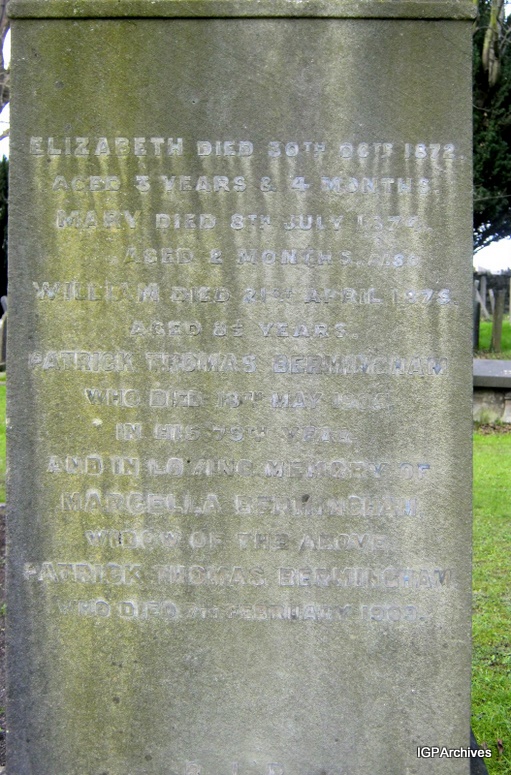 ELIZABETH DIED 30TH 1872.
AGED 3 YEARS & 4 MONTHS
MARY DIED 8TH JULY
AGED 2 MONTHS.
WILLIAM DIED 21ST APRIL 1875.
AGED YEARS.
PATRICK THOMAS BERMINGHAM
WHO DIED MAY
IN HIS YEAR
AND IN LOVING MEMORY OF
MARCELLA BERMINGHAM
WIDOW OF THE ABOVE
PATRICK THOMAS BERMINGHAM
WHO DIED FEBRUARY
IGPArchives